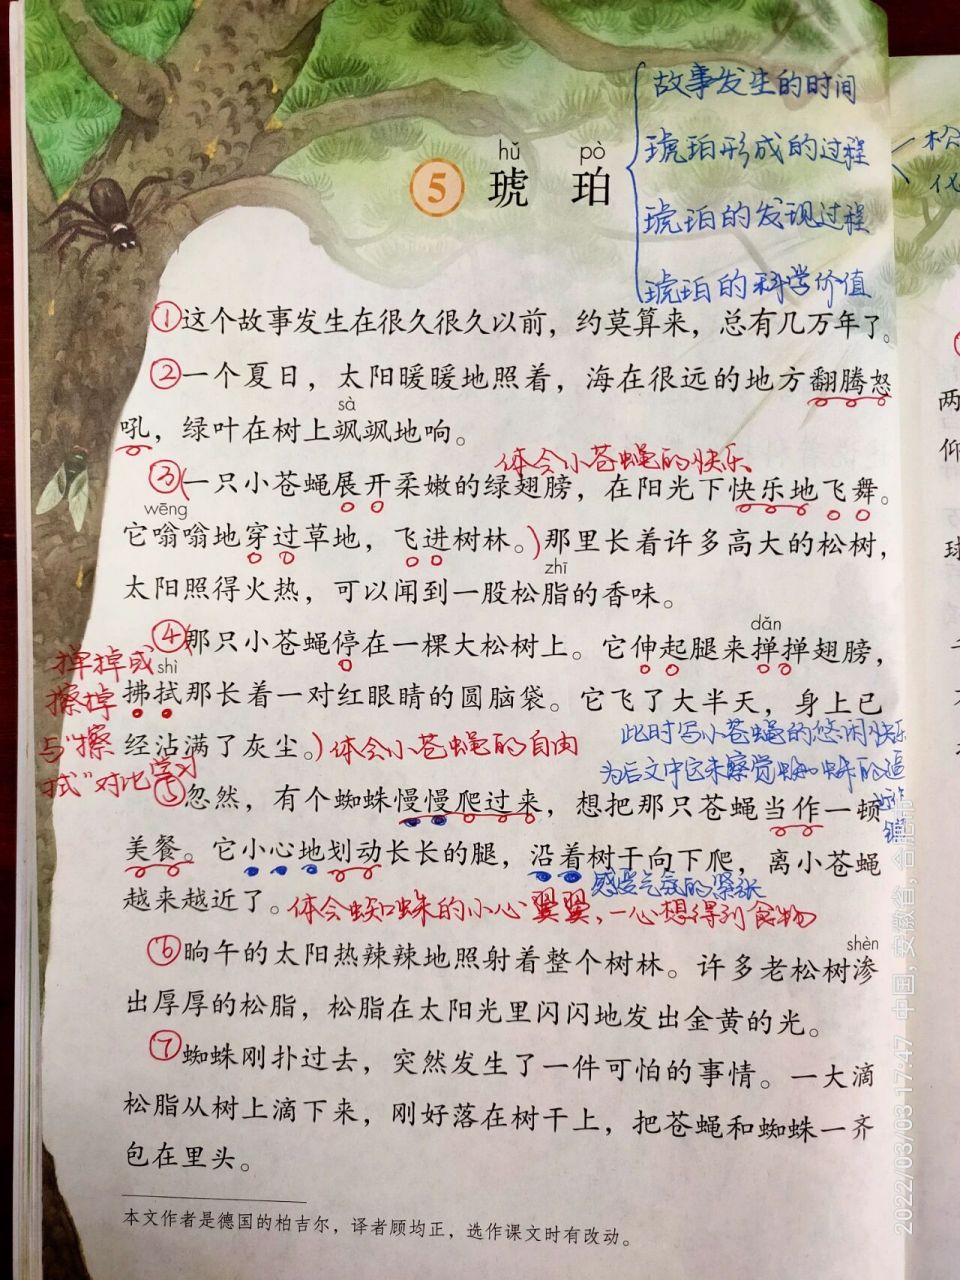 故事发生的时间
琥珀形成的过程
琥珀的发现过程
琥珀的科学价值
hǔ pò
5 琥 珀
①这个故事发生在很久很久以前，约莫算来，总有几万年了。
②一个夏日，太阳暖暖地照着，海在很远的地方翻腾怒
sà
吼，绿叶在树上飒飒地响。
体会小苍蝇的快乐
③(一只小苍蝇展开柔嫩的绿翅膀，在阳光下快乐地飞舞。
wēng
它嗡嗡地穿过草地，飞进树林。)那里长着许多高大的松树，
zhī
太阳照得火热，可以闻到一股松脂的香味。
dǎn
④(那只小苍蝇停在一棵大松树上。它伸起腿来掸掸翅膀，
掸掉或
shì
拂拭那长着一对红眼睛的圆脑袋。它飞了大半天，身上已
擦掉
经沾满了灰尘。)体会小苍蝇的自由
与“擦
拭”对比学习
此时写小苍蝇的悠闲快乐
为后文中它未察觉蜘蛛的逼
近作
⑤忽然，有个蜘蛛慢慢爬过来，想把那只苍蝇当作一顿
美餐。它小心地划动长长的腿，沿着树干向下爬，离小苍蝇
感受气氛的紧张
越来越近了。体会蜘蛛的小心翼翼，一心想得到食物
shèn
⑥晌午的太阳热辣辣地照射着整个树林。许多老松树渗
出厚厚的松脂，松脂在太阳光里闪闪地发出金黄的光。
⑦蜘蛛刚扑过去，突然发生了一件可怕的事情。一大滴
松脂从树上滴下来，刚好落在树干上，把苍蝇和蜘蛛一齐
包在里头。
本文作者是德国的柏吉尔，译者顾均正，选作课文时有改动。
2022/03/03 17:47 中国，安徽省，合肥市